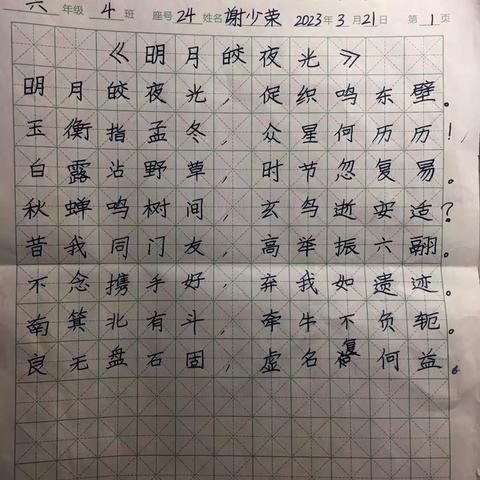 六年级 4班 座号24 姓名谢少荣 2023年3月21日 第1页
《明月皎夜光》
明月皎夜光，促织鸣东壁。
玉衡指孟冬，众星何历历！
白露沾野草，时节忽复易。
秋蝉鸣树间，玄鸟逝安适？
昔我同门友，高举振六翮。
不念携手好，弃我如遗迹。
南箕北有斗，牵牛不负轭。
良无盘石固，虚名复何益。